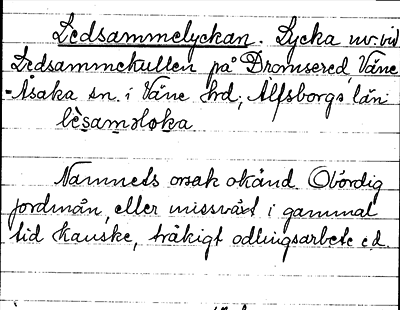 Ledsammelyckan. Lycka nv. vid
Ledsammekullen på Dromsered, Väne
-Åsaka sn. i Väne hrd, Älfsborgs län
lèsamələka
Namnets orsak okänd. Obördig
jordmån, eller missväxt i gammal
tid kanske, tråkigt odlingsarbete e.d.